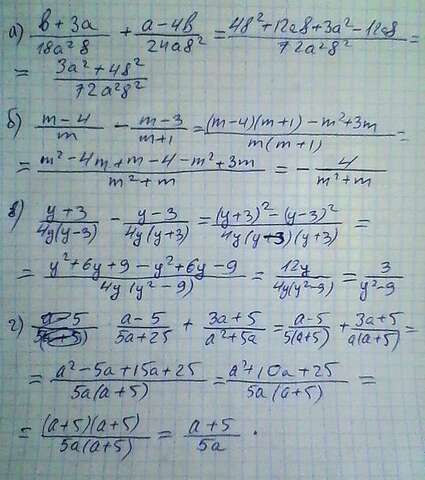 а) (в + 3а)/(18а²в) + (а - 4в)/(24ав²) = (4в² + 12ав + 3а² - 12ав)/(72а²в²) =
= (3а² + 4в²)/(72а²в²)
б) (m - 4)/m - (m - 3)/(m + 1) = ((m - 4)(m + 1) - m² + 3m)/(m(m + 1)) =
= (m² - 4m + m - 4 - m² + 3m)/(m² + m) = - 4/(m² + m)
в) (y + 3)/(4y(y - 3)) - (y - 3)/(4y(y + 3)) = ((y + 3)² - (y - 3)²)/(4y(y - 3)(y + 3)) =
= (y² + 6y + 9 - y² + 6y - 9)/(4y(y² - 9)) = 12y/(4y(y² - 9)) = 3/(y² - 9)
г) (а - 5)/(5а + 25) + (3а + 5)/(а² + 5а) = (а - 5)/(5(а + 5)) + (3а + 5)/(а(а + 5)) =
= (а² - 5а + 15а + 25)/(5а(а + 5)) = (а² + 10а + 25)/(5а(а + 5)) =
= ((а + 5)(а + 5))/(5а(а + 5)) = (а + 5)/(5а) .